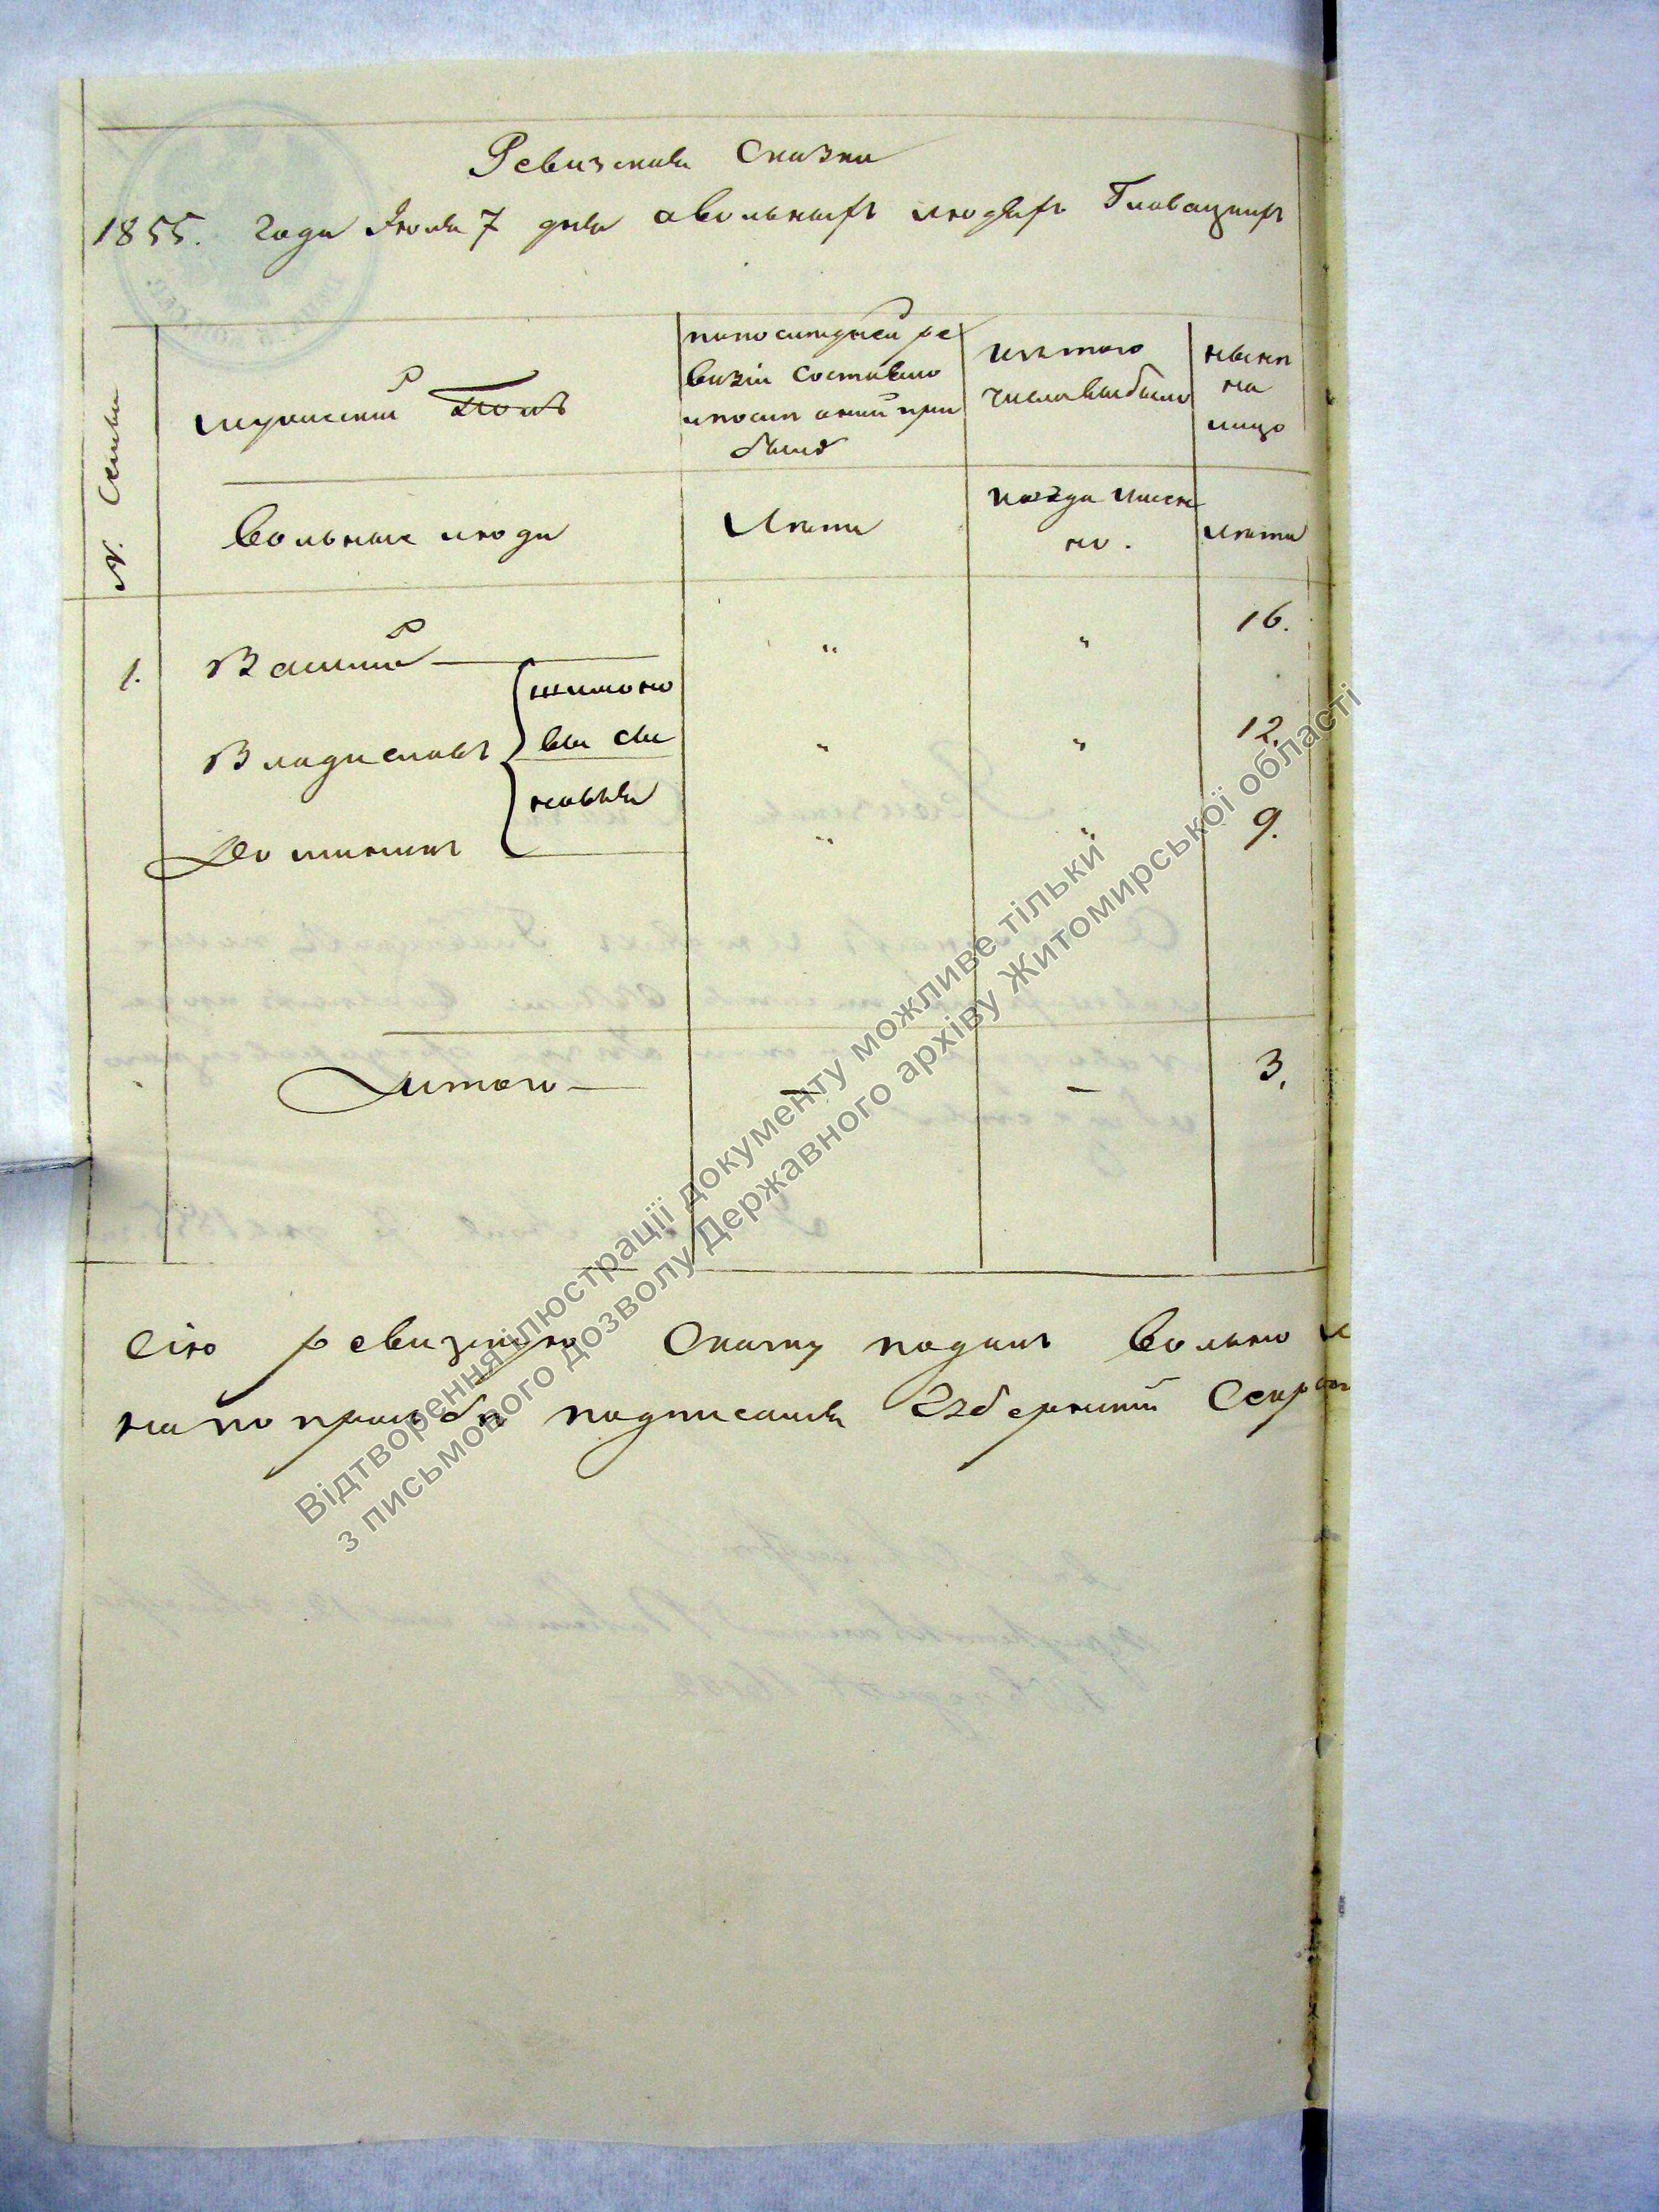 Ревизская Сказка
1855. года Июля 7 дня о вольныхъ людяхъ Главацкихъ
№. Семьи
мужескій Полъ
по последней ре
визіи состояло
и после оной при
было
изъ того
числа выбыло
ныне
на
лицо
Вольные люди
Лета
когда имен
но.
Лета
1. Василій " " 16.
Владиславъ " " 12.
Доминикъ " " 9.
шимоно
вы сы
новья
Итого — — — 3.
Сію ревизскую Сказку подалъ вольно
на по прозьбе подписался
Відтворення ілюстрації документу можливе тільки
з письмового дозволу Державного архіву Житомирської області